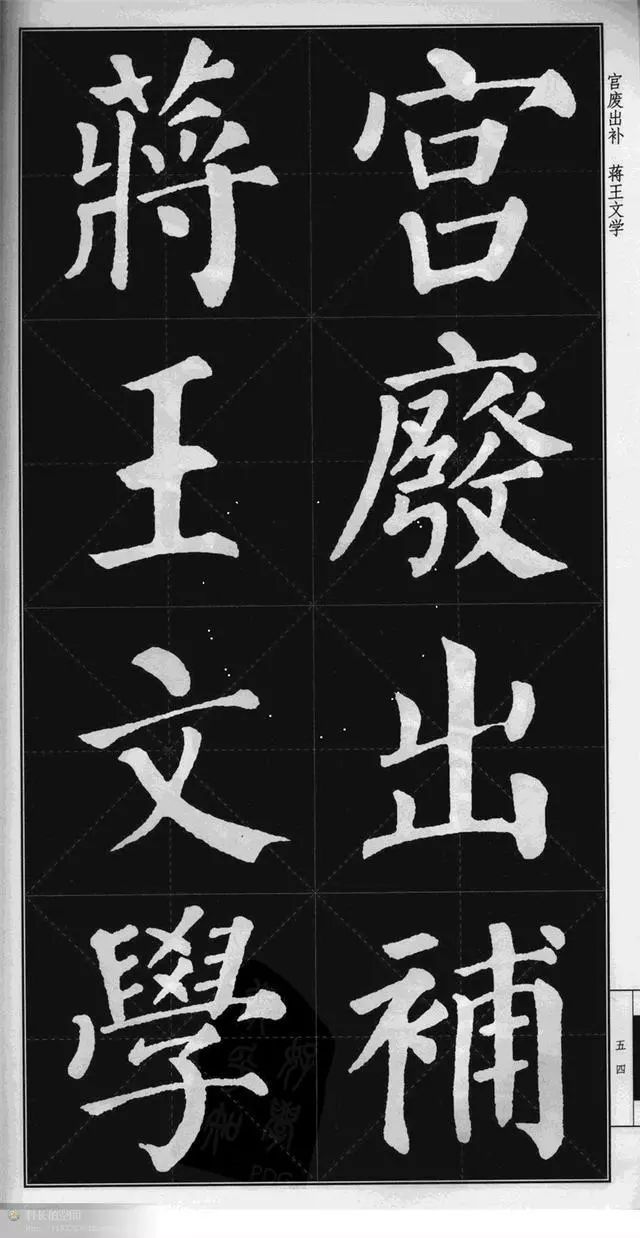 宫廢出補
蔣王文學
宫废出补 蒋王文学
五四